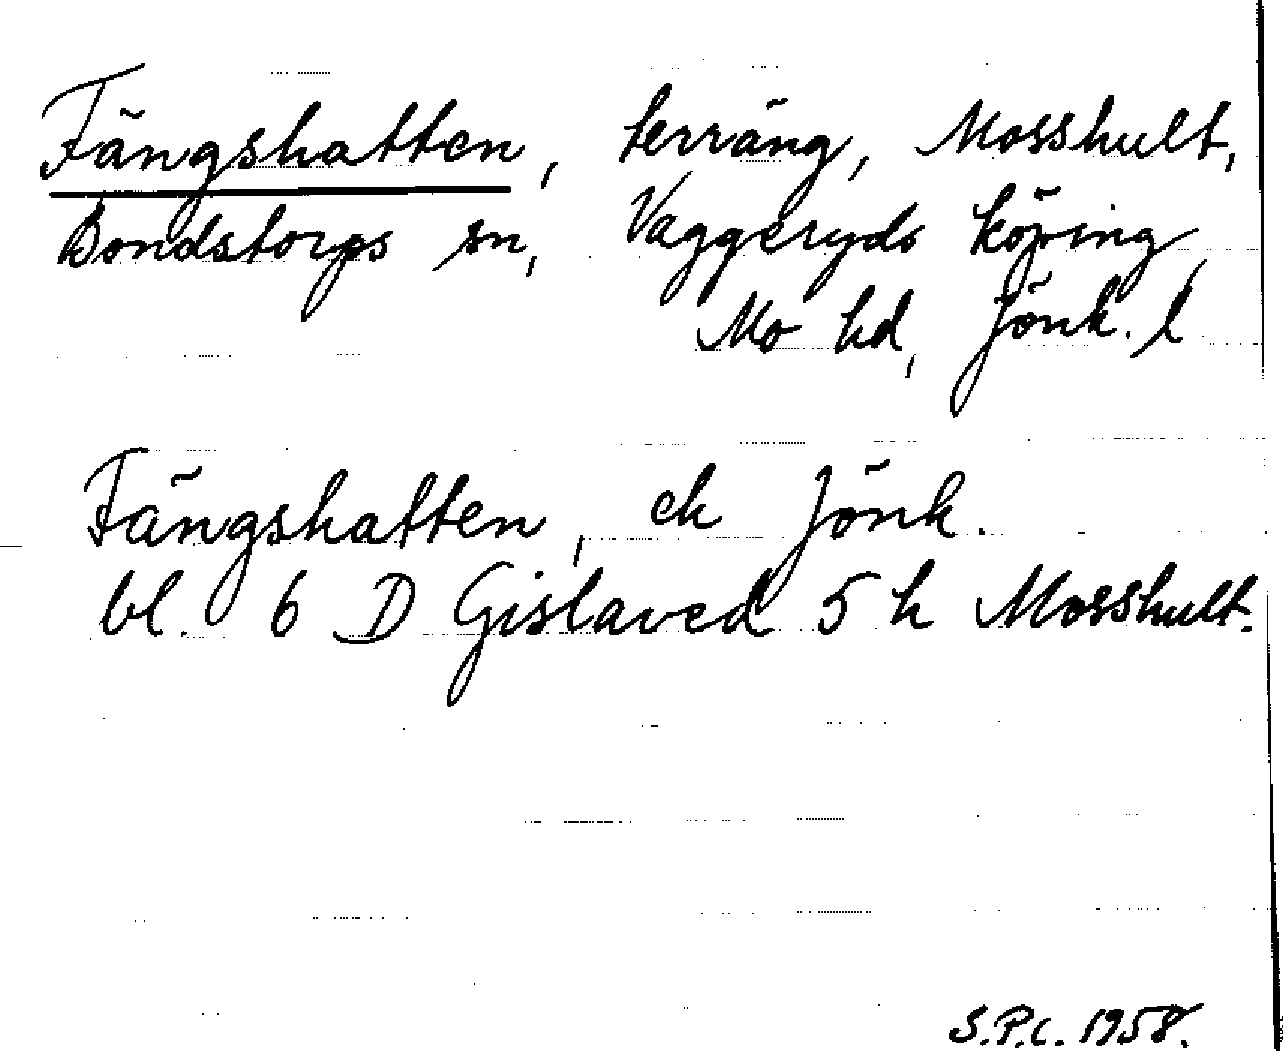 Fängshatten, terräng, Mosshult,
Bondstorps sn, Vaggeryds köping,
Mo hd, Jönk. l
Fängshatten, ek Jönk.
bl. 6 D Gislaved 5 h Mosshult.
S.P.C. 1958.